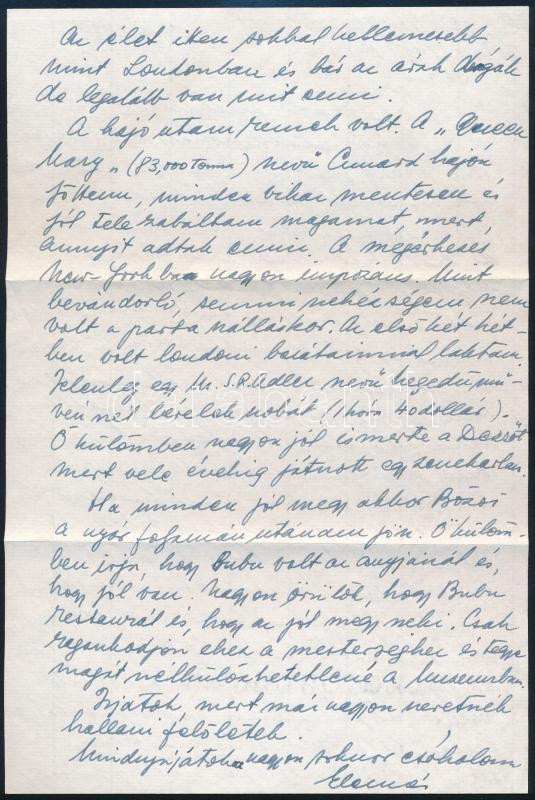 Az élet itten sokkal kellemesebb
mint Londonban és bár az árak drágák
de legalább van mit enni.
A hajó utam remek volt. A „Queen
Mary„ (83,000 Tonna) nevű Cunard hajón
jöttem, minden vihar mentesen és
jól tele zabáltam magamat, mert
annyit adtak enni. A megérkezés
New-Yorkba nagyon impozáns. Mint
bevándorló, semmi nehézségem nem
volt a partra szálláskor. Az első két hét-
ben volt londoni barátaimnál laktam.
Jelenleg egy Mr. S.R. Adler nevű hegedűmű-
vésznél bérelek szobát (1 hóra 40 dollár).
Ő külömben nagyon jól ismerte a Dezsőt
mert vele évekig játszott egy zenekarban.
Ha minden jól megy akkor Bözsi
a nyár folyamán utánam jön. Ő külöm-
ben írja, hogy Bubu volt az anyjánál és,
hogy jól van. Nagyon örülök, hogy Bubu
restaurál és, hogy az jól megy neki. Csak
ragaszkodjon ehez a mesterséghez és tegye
magát nélkülözhetetlené a Muzeumban.
Irjatok, mert már nagyon szeretnék
hallani felőletek.
Mindnyájatokat nagyon sokszor csókolom
darabanth.com